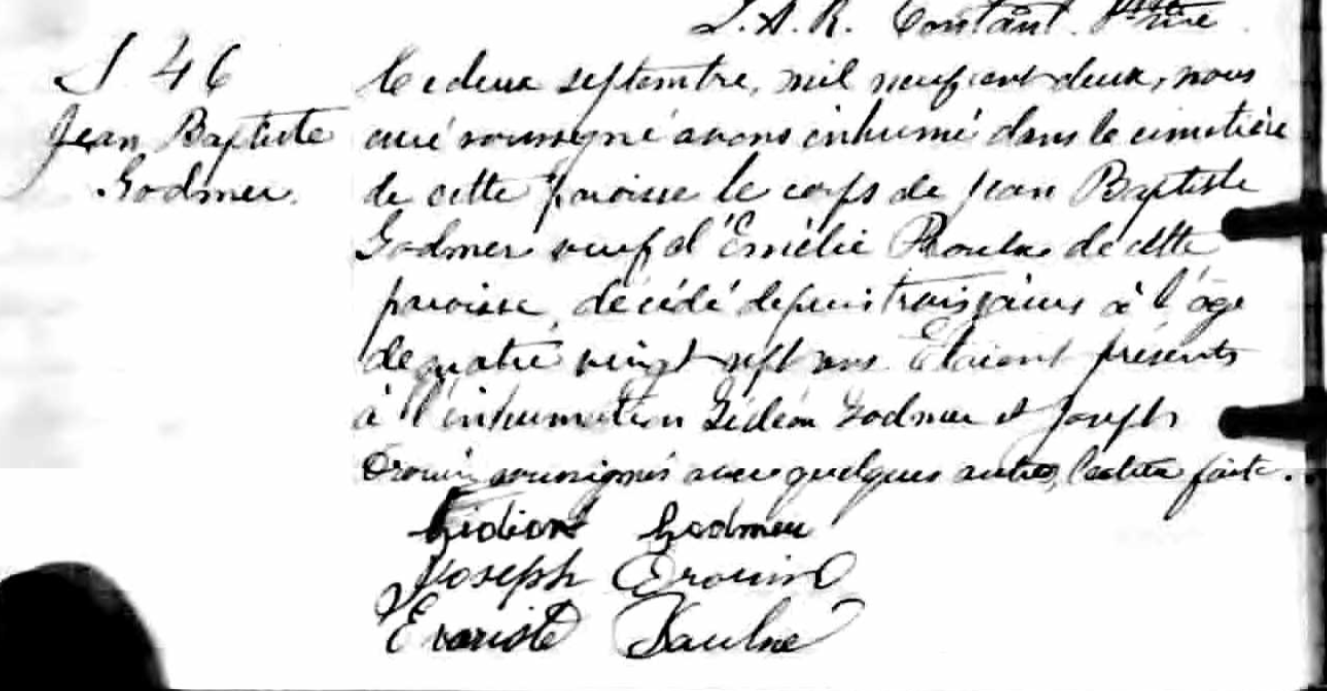 L. A. R. Constant Ptre
S 46
Jean Baptiste
Godmer.
Le deux septembre, mil neuf cent deux, nous
curé soussigné avons inhumé dans le cimetière
de cette paroisse le corps de Jean Baptiste
Godmer veuf d'Emélie Proulx de cette
paroisse, décédé depuis trois jours à l'âge
de quatre vingt sept ans. Etaient présents
à l'inhumation Gédéon Godmer et Joseph
Drouin soussignés avec quelques autres, lecture faite.
Gédéon Godmer
Joseph Drouin
Evariste